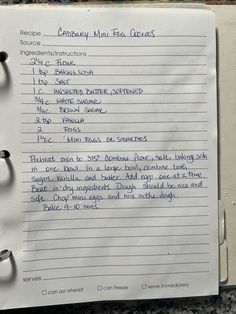 Recipe Cadbury Mini Egg Cookies
Source
Ingredients/Instructions
2 1/4 c Flour
1 tsp Baking Soda
1 tsp Salt
1 c Unsalted Butter, softened
3/4 c White Sugar
3/4 c Brown Sugar
2 tsp Vanilla
2 Eggs
1 1/2 c Mini Eggs or Smarties
Preheat oven to 375° Combine flour, salt, baking soda
in one bowl. In a large bowl, combine both
sugars, vanilla and butter. Add eggs one at a time.
Beat in dry ingredients. Dough should be nice and
soft. Chop mini eggs and mix in the dough.
Bake 9-10 mins
serves
can go ahead can freeze serve immediately